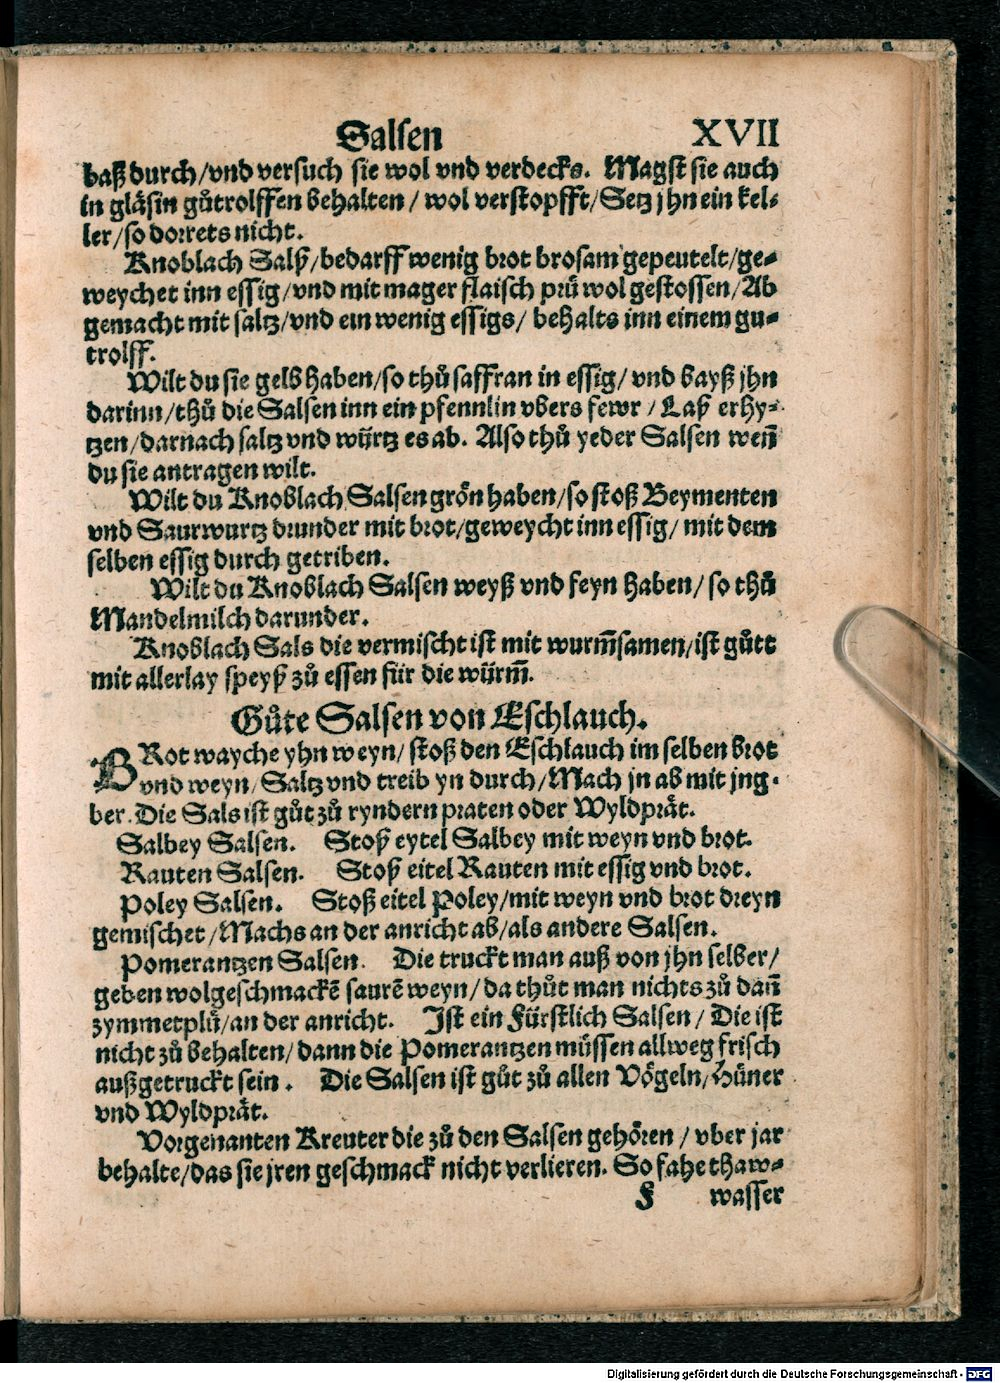 Salsen XVII
baß durch/vnd versuch sie wol vnd verdecks. Magst sie auch
in gläsin gůtrolffen behalten / wol verstopfft/Setz jhn ein kel-
ler/so dorrets nicht.
Knoblach Salß/bedarff wenig brot brosam gepeutelt/ge-
weychet inn essig/vnd mit mager flaisch prů wol gestossen/Ab
gemacht mit saltz/vnd ein wenig essigs/ behalts inn einem gu-
trolff.
Wilt du sie gelb haben/so thů saffran in essig/ vnd bayß jhn
darinn/thů die Salsen inn ein pfennlin vbers fewr / Laß erhy-
tzen/darnach saltz vnd würtz es ab. Also thů yeder Salsen weñ
du sie antragen wilt.
Wilt du Knoblach Salsen grön haben/so stoß Beymenten
vnd Saurwurtz drunder mit brot/geweycht inn essig/ mit dem
selben essig durch getriben.
Wilt du Knoblach Salsen weyß vnd feyn haben/ so thů
Mandelmilch darunder.
Knoblach Sals die vermischt ist mit wurm̃samen/ist gůtt
mit allerlay speyß zů essen für die würm̃.
Gůte Salsen von Eschlauch.
BRot wayche yhn weyn/ stoß den Eschlauch im selben brot
vnd weyn/Saltz vnd treib yn durch/Mach jn ab mit jng-
ber. Die Sals ist gůt zů ryndern praten oder Wyldprät.
Salbey Salsen. Stoß eytel Salbey mit weyn vnd brot.
Rauten Salsen. Stoß eitel Rauten mit essig vnd brot.
Poley Salsen. Stoß eitel Poley/mit weyn vnd brot dreyn
gemischet/Machs an der anricht ab/als andere Salsen.
Pomerantzen Salsen. Die truckt man auß von jhn selber/
geben wolgeschmackẽ saurẽ weyn/da thůt man nichts zů dañ
zymmetplů/an der anricht. Ist ein Fürstlich Salsen / Die ist
nicht zů behalten/dann die Pomerantzen müssen allweg frisch
außgetruckt sein. Die Salsen ist gůt zů allen Vögeln/Hüner
vnd Wyldprät.
Vorgenanten Kreuter die zů den Salsen gehören / vber jar
behalte/das sie jren geschmack nicht verlieren. So fahe thaw-
F wasser
Digitalisierung gefördert durch die Deutsche Forschungsgemeinschaft - DFG